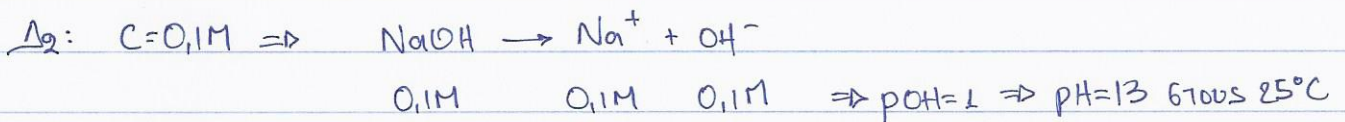 Δ2: C=0,1M ⇒ NaOH → Na⁺ + OH⁻
0,1M 0,1M 0,1M ⇒ pOH=1 ⇒ pH=13 στους 25°C